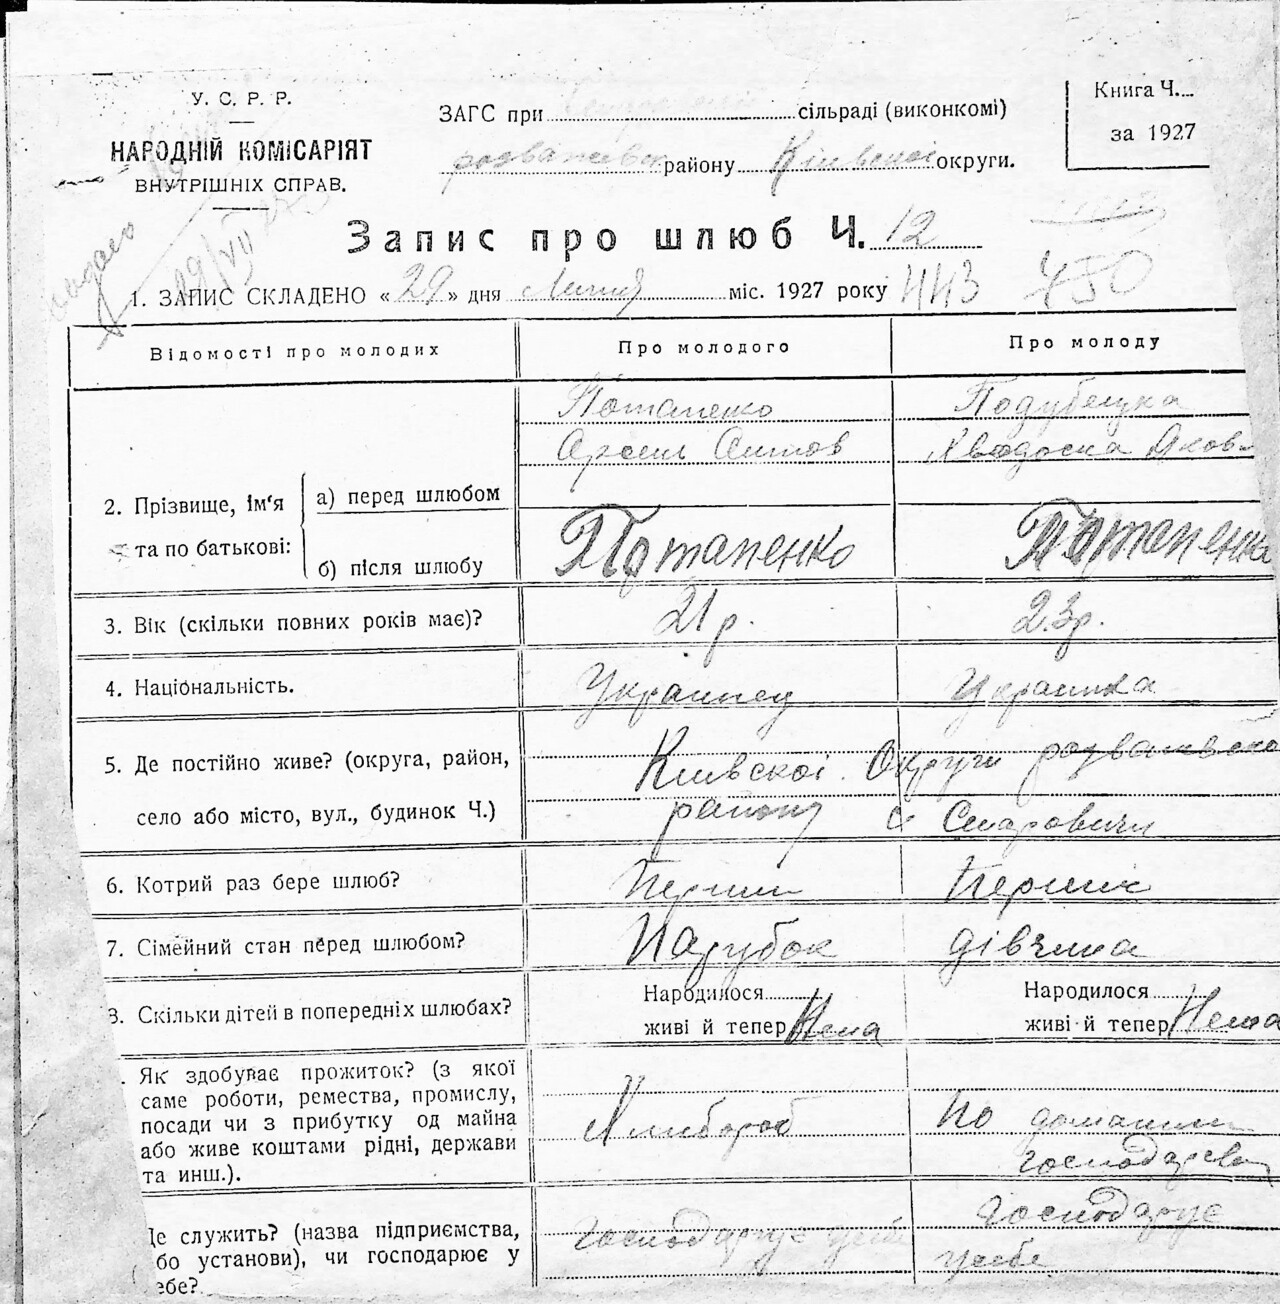 У. С. Р. Р.
НАРОДНІЙ КОМІСАРІЯТ
ВНУТРІШНІХ СПРАВ.
ЗАГС при сільраді (виконкомі)
району Київскої округи.
Книга Ч.
за 1927
Запис про шлюб Ч. 12
29/VII 27
1. ЗАПИС СКЛАДЕНО «29» дня Липня міс. 1927 року 443 450
Відомості про молодих Про молодого Про молоду
2. Прізвище, ім'я та по батькові:
а) перед шлюбом
Потапенко
Подубецка
Яков
б) після шлюбу Потапенко Потапенка
3. Вік (скільки повних років має)? 21 р. 23 р.
4. Національність. Українец Українка
5. Де постійно живе? (округа, район,
село або місто, вул., будинок Ч.)
Київскої Округи
району с Старовичи
6. Котрий раз бере шлюб? Перший
7. Сімейний стан перед шлюбом? Парубок дівчина
8. Скільки дітей в попередніх шлюбах?
Народилося Народилося
живі й тепер Нема живі й тепер Нема
Як здобуває прожиток? (з якої
саме роботи, ремества, промислу,
посади чи з прибутку од майна
або живе коштами рідні, держави
та инш.).
Хлибороб
по
Де служить? (назва підприємства,
або установи), чи господарює у
себе?
Господарує
Господарує
усебе